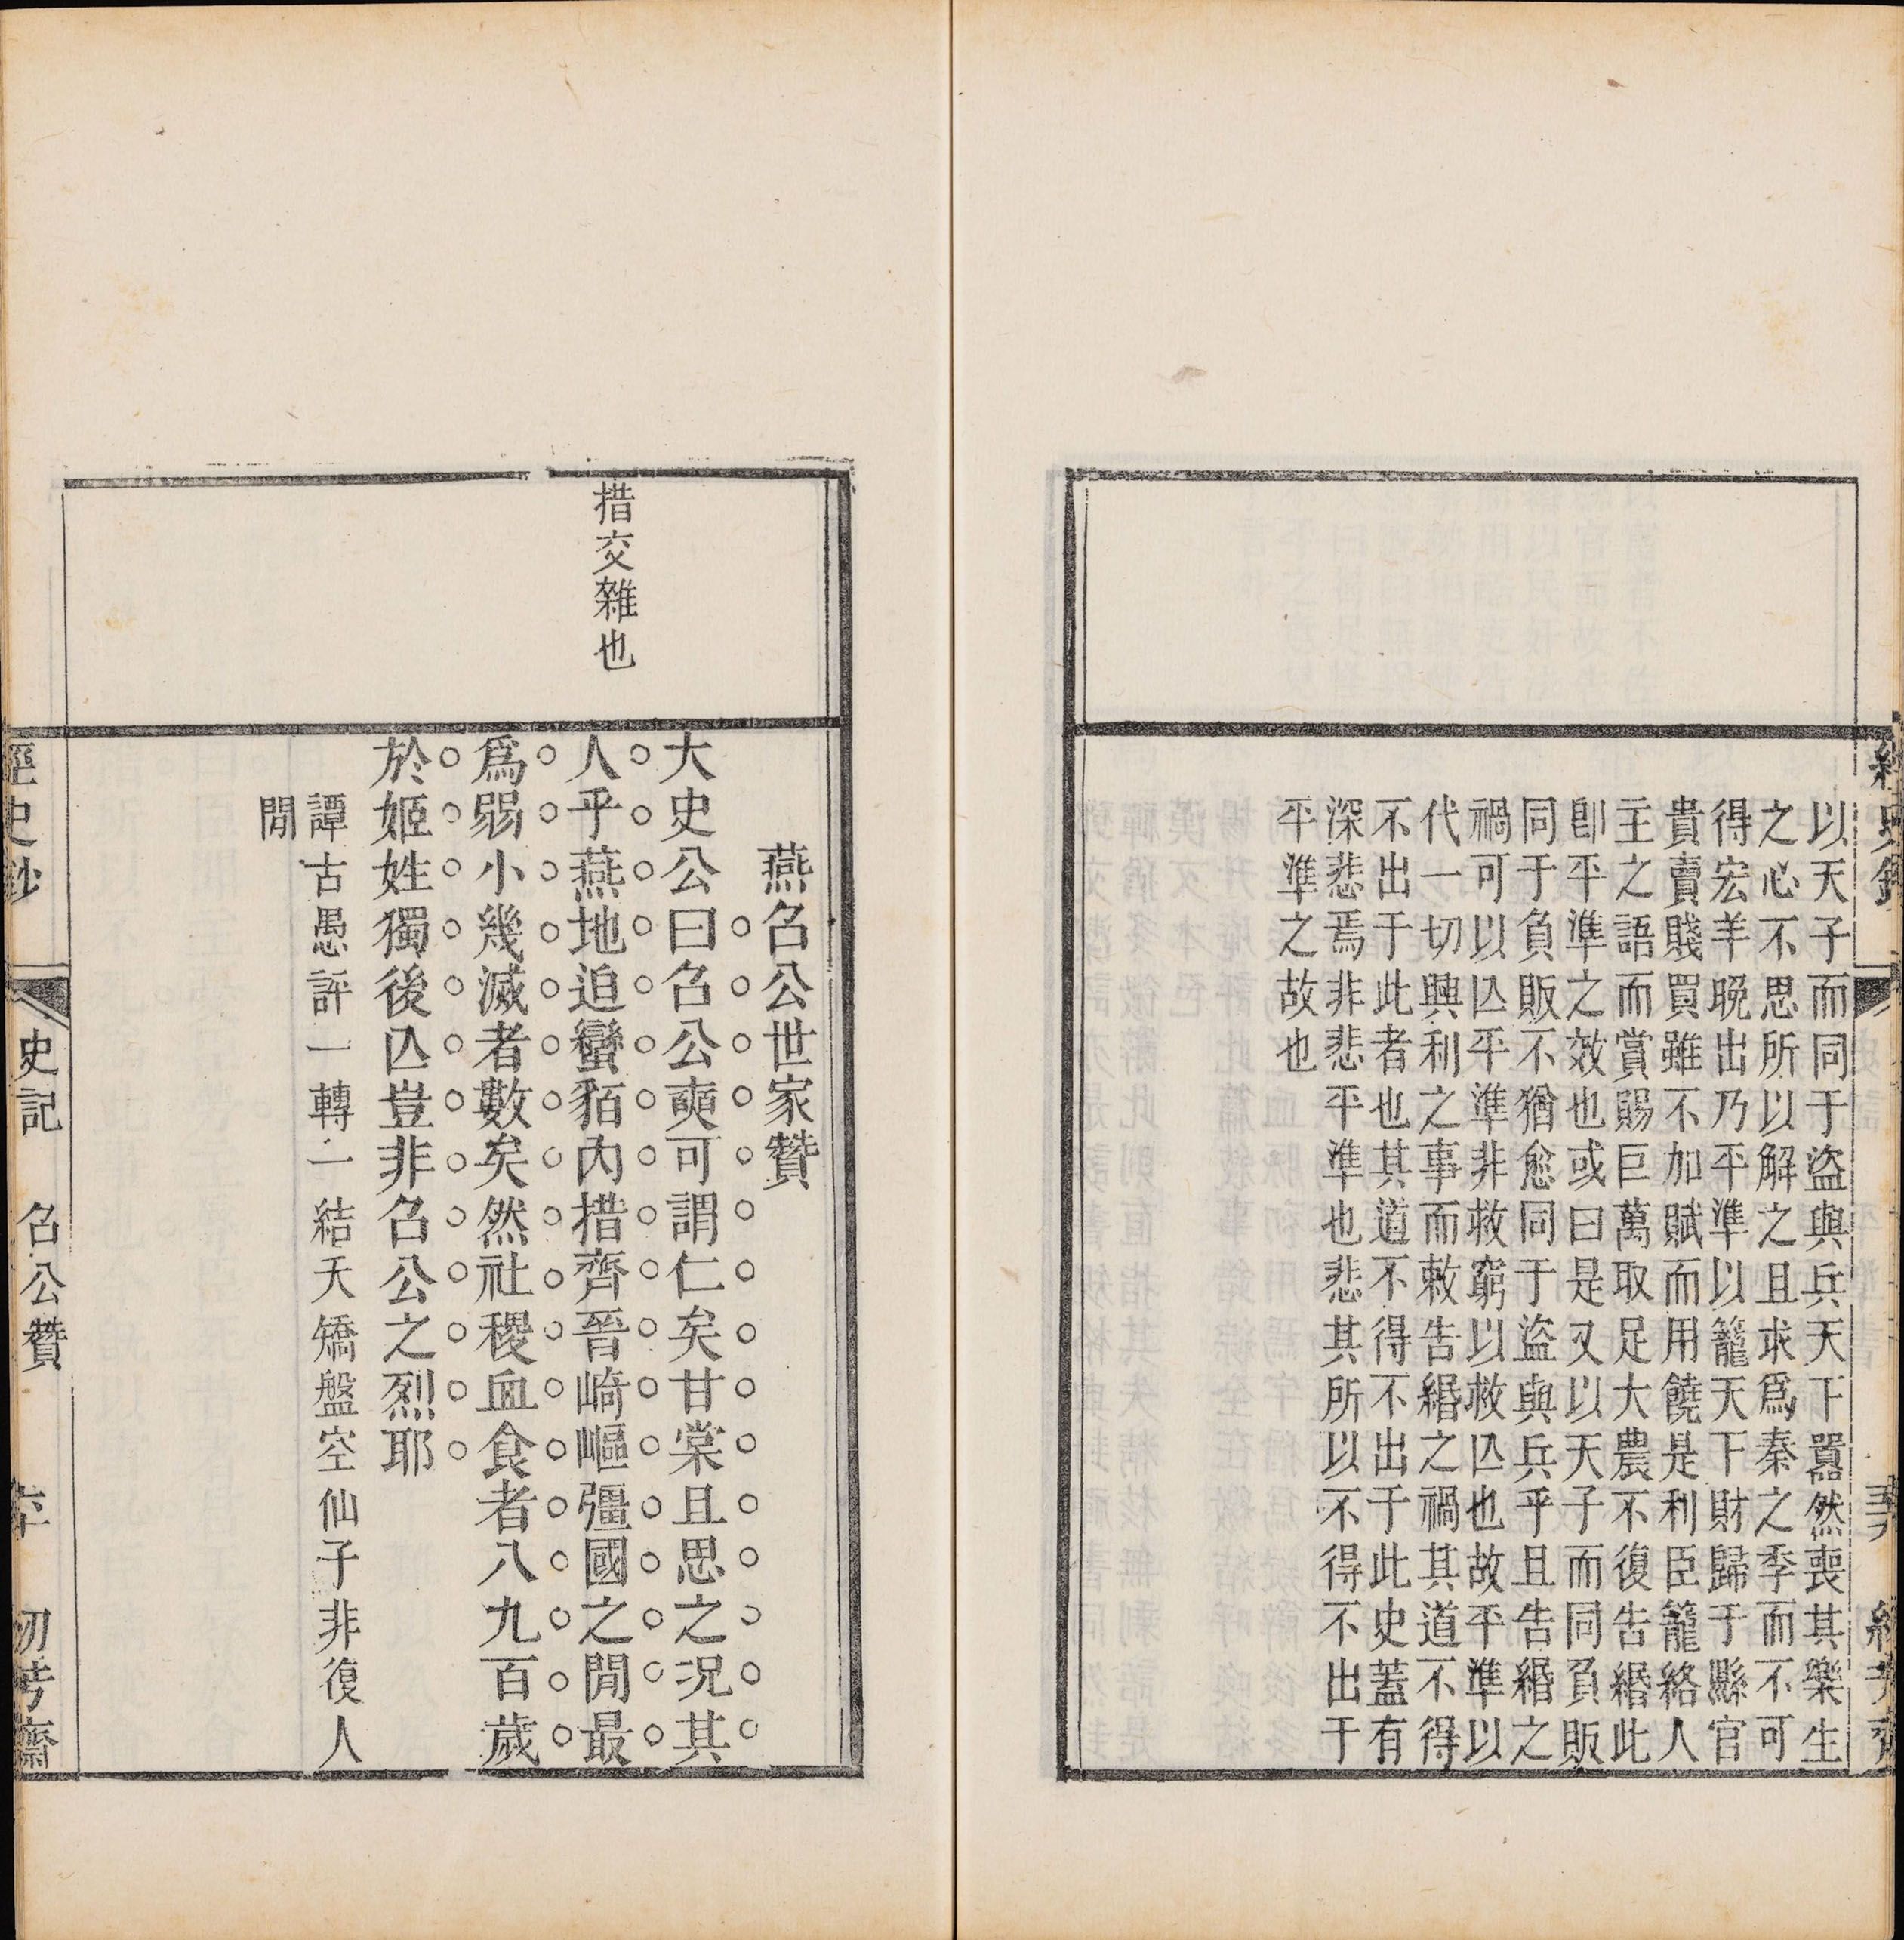 以天子而同于盜與兵天下囂然喪其樂生
之心不思所以解之且求爲秦之季而不可
得宏羊晚出乃平準以籠天下財歸于縣官
貴賣賤買雖不加賦而用饒是利臣籠絡人
主之語而賞賜巨萬取足大農不復告緡此
卽平準之效也或曰是又以天子而同負販
同于負販不猶愈同于盜與兵乎且告緡之
禍可以亾平準非救窮以救亾也故平準以
代一切興利之事而敕告緡之禍其道不得
不出于此者也其道不得不出于此史蓋有
深悲焉非悲平準也悲其所以不得不出于
平準之故也
措交雜也
燕召公世家贊
大史公曰召公奭可謂仁矣甘棠且思之况其
人乎燕地迫蠻貊內措齊晉崎嶇彊國之閒最
爲弱小幾滅者數矣然社稷血食者八九百歲
於姬姓獨後亾豈非召公之烈耶
譚古愚評一轉一結夭矯盤空仙子非復人
閒
經史鈔
史記
召公贊
初考齋